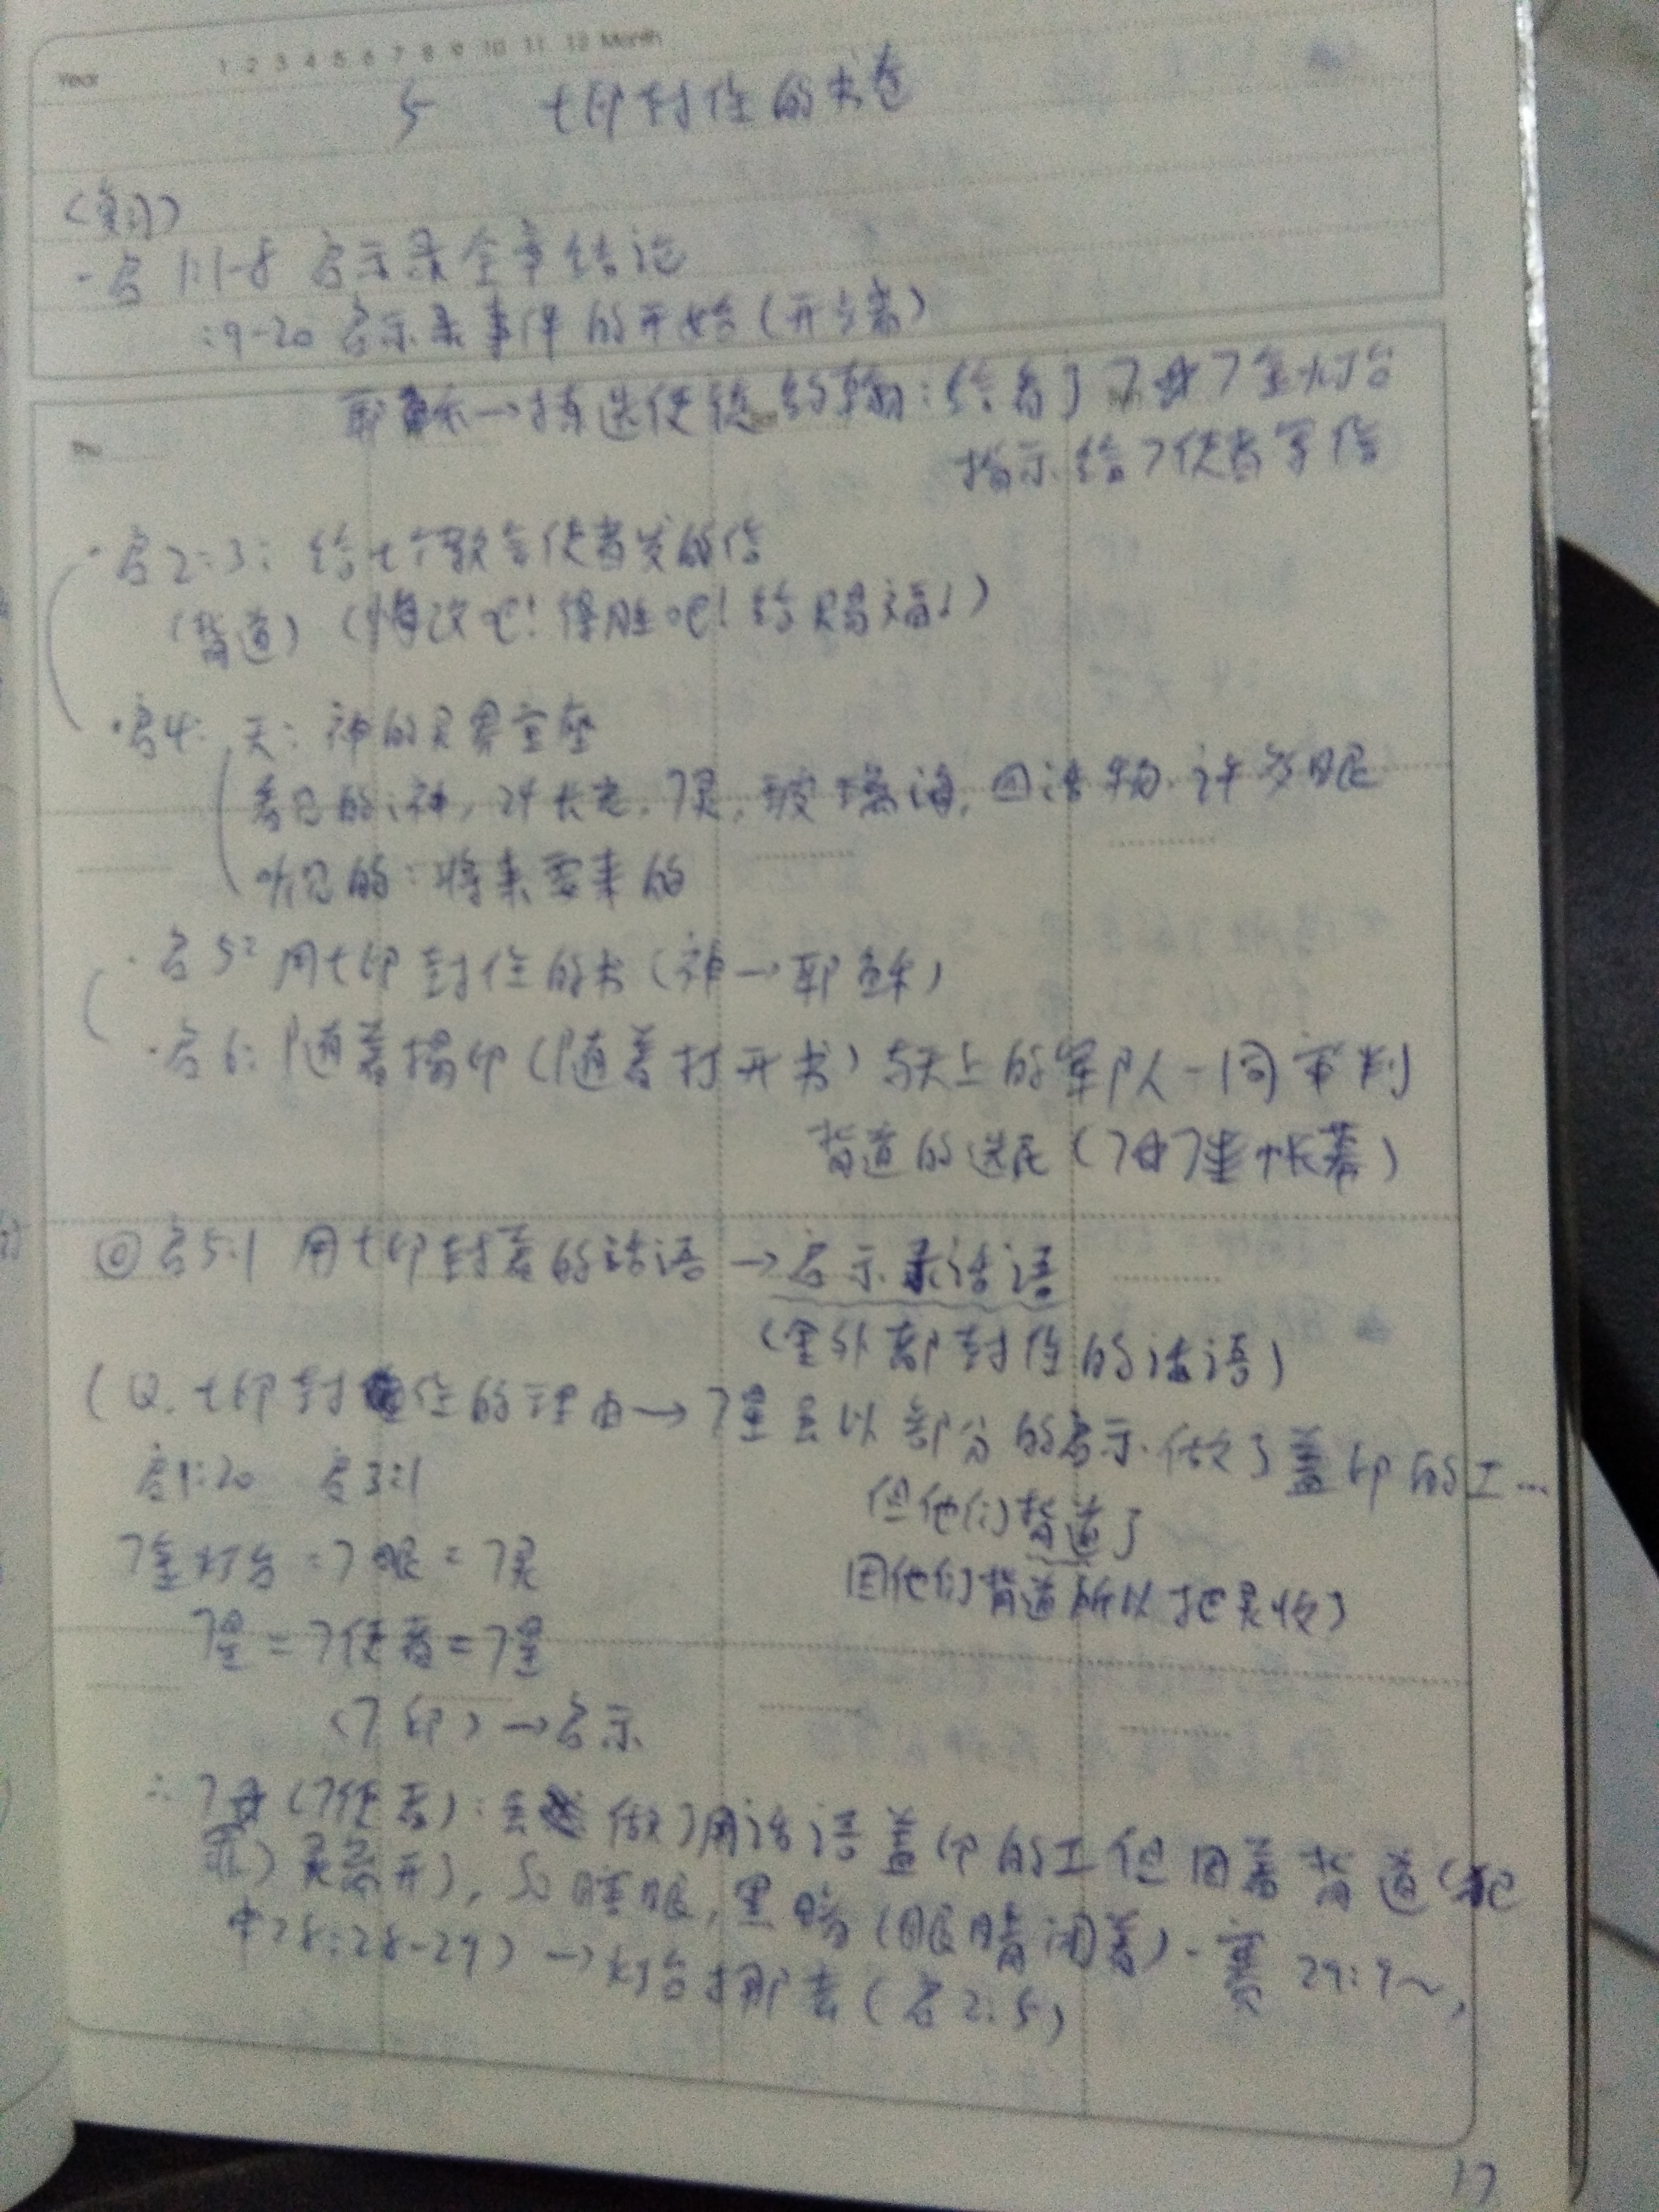 Year 1 2 3 4 5 6 7 8 9 10 11 12 Month
5 七印封住的书卷
(复习)
-启1:1-8 启示录全章结论
:9-20 启示录事件的开始(开头)
耶稣→拣选使徒约翰:给看了7星7金灯台
指示给7使者写信
·启2:3: 给七个教会使者发的信
(背道)(悔改吧!得胜吧!给赐福!)
·启4: 天:神的灵界宝座
看见的:神,24长老,7灵,玻璃海,四活物.许多眼
听见的:将来要来的
·启5: 用七印封住的书(神→耶稣)
·启6: 随着揭印(随着打开书)与天上的军队一同审判
背道的选民(7星7金帐幕)
◎启5:1 用七印封着的话语→启示录话语
(里外都封住的话语)
(Q.七印封住的理由→7星是以部分的启示.做了盖印的工...
启1:20 启3:1
但他们背道了
7金灯台=7眼=7灵
因他们背道所以把灵收了
7星=7使者=7星
(7印)→启示
∴7星(7使者):是做了用话语盖印的工但因着背道(犯
罪)灵离开了,so 睡眠,黑暗(眼睛闭着).赛29:9~,
申28:28-29)→灯台挪去(启2:5)
17